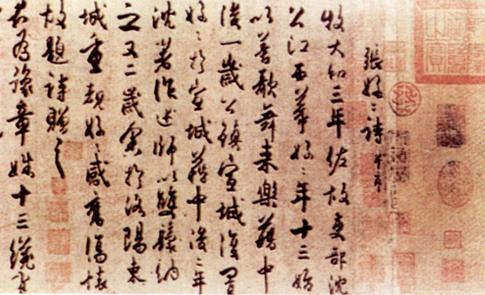 張好〻詩并序
牧大和三年佐故吏部沈
公江西幕好〻年十三始
以善歌舞來樂籍中
後一歲公鎮宣城復置
好〻於宣城籍中後二年
沈著作述師以雙鬟納
之又二歲余於洛陽東
城重覩好〻感舊傷懷
故題詩贈之
君為豫章姝十三纔有